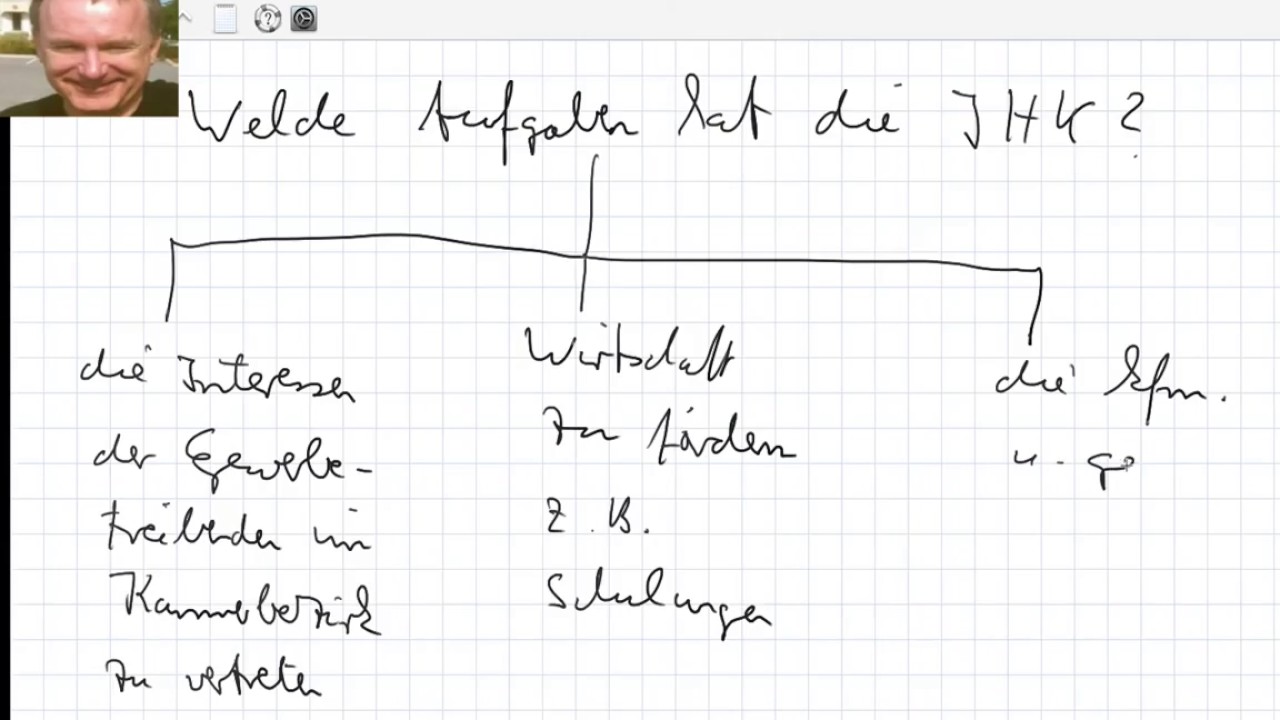 Welche Aufgaben hat die IHK?
die Interessen
der Gewerbe-
treibenden im
Kammerbezirk
zu vertreten
Wirtschaft
zu fördern
z.B.
Schulungen
die kfm.
u. ge